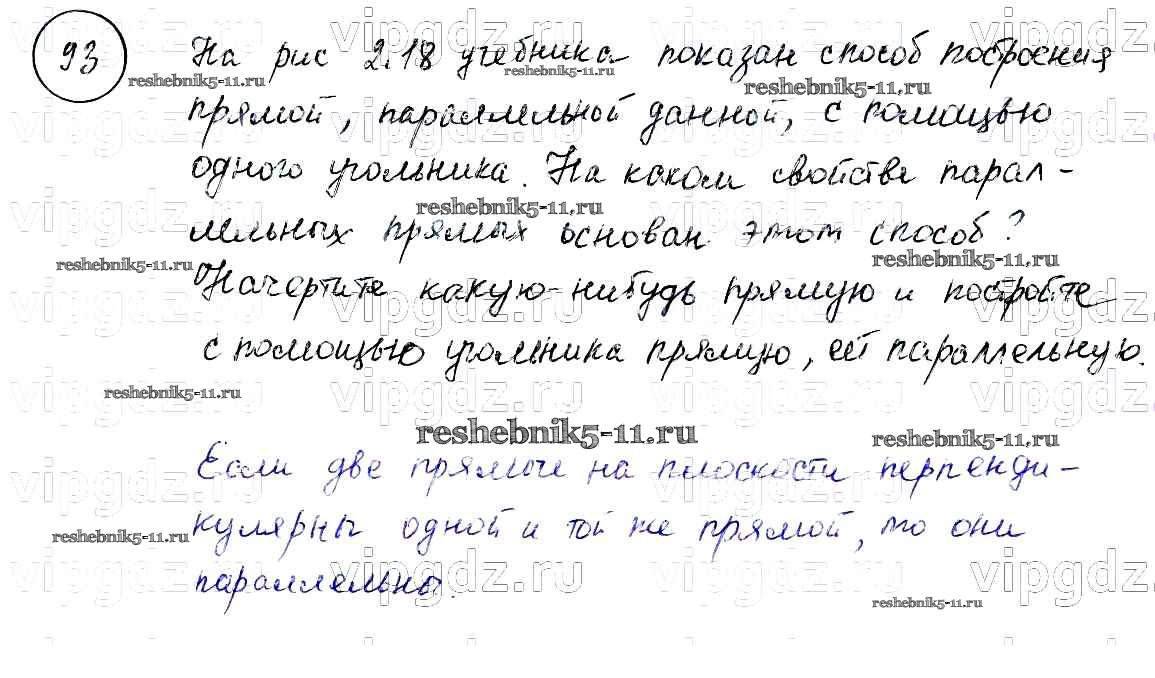 93
На рис 2.18 учебника показан способ построения
прямой, параллельной данной, с помощью
одного угольника. На каком свойстве парал-
лельных прямых основан этот способ?
Начертите какую-нибудь прямую и постройте
с помощью угольника прямую, ей параллельную.
Если две прямые на плоскости перпенди-
кулярны одной и той же прямой, то они
параллельны.
vipgdz.ru
reshebnik5-11.ru